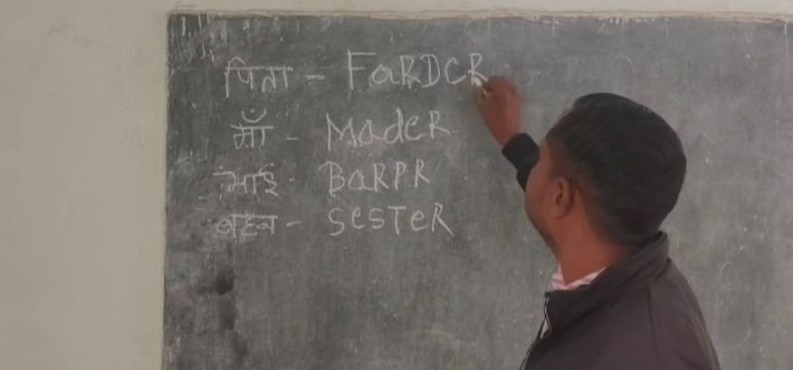 पिता - FaRDCR
माँ - MadcR
भाई - BaRPR
बहन - SesTeR